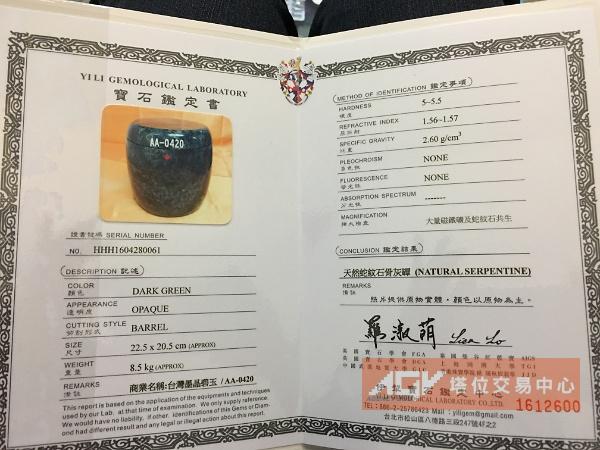 YI LI GEMOLOGICAL LABORATORY
寶石鑑定書
AA-0420
證書號碼 SERIAL NUMBER
NO. HHH1604280061
DESCRIPTION 記述
COLOR DARK GREEN
顏色
APPEARANCE OPAQUE
透明度
CUTTING STYLE BARREL
切割形式
SIZE 22.5 x 20.5 cm (APPROX)
尺寸
WEIGHT 8.5 kg (APPROX)
重量
REMARKS 商業名稱:台灣墨晶碧玉 / AA-0420
備註
This report is based on the application of the equipments and techniques
used by our Lab, at that time of examination. We only supply reference.
We would have no liability. If other, identifications of this Gems or Diam-
ond had different result and any legal or illegal action about this report.
METHOD OF IDENTIFICATION 鑑定事項
HARDNESS 5~5.5
硬度
REFRACTIVE INDEX 1.56-1.57
屈折率
SPECIFIC GRAVITY 2.60 g/cm³
比重
PLEOCHROISM NONE
多色性
FLUORESCENCE NONE
螢光性
ABSORPTION SPECTRUM -------
分光性
MAGNIFICATION 大量磁鐵礦及蛇紋石共生
擴大檢查
CONCLUSION 鑑定結果
天然蛇紋石骨灰罈 (NATURAL SERPENTINE)
REMARKS
備註
照片提供原物實體,顏色以原物為主。
羅淑萌
英國寶石學會 FGA
AIGS
TGI
AGV 塔位交易中心
GEMOLOGICAL LABORATORY CO.,LTD.
TEL: 886-2-25786423 Mail : yiligem@gmail.com
台北市松山區八德路三段247號4F之2
1612600